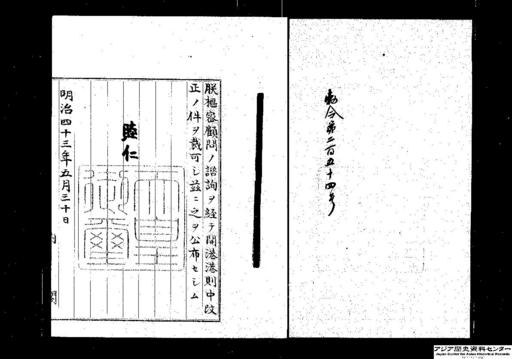 勅令第二百五十四号
朕枢密顧問ノ諮詢ヲ経テ開港港則中改
正ノ件ヲ裁可シ茲ニ之ヲ公布セシム
睦仁
天皇御璽
明治四十三年五月三十日
内閣
アジア歴史資料センター
Japan Center for Asian Historical Records